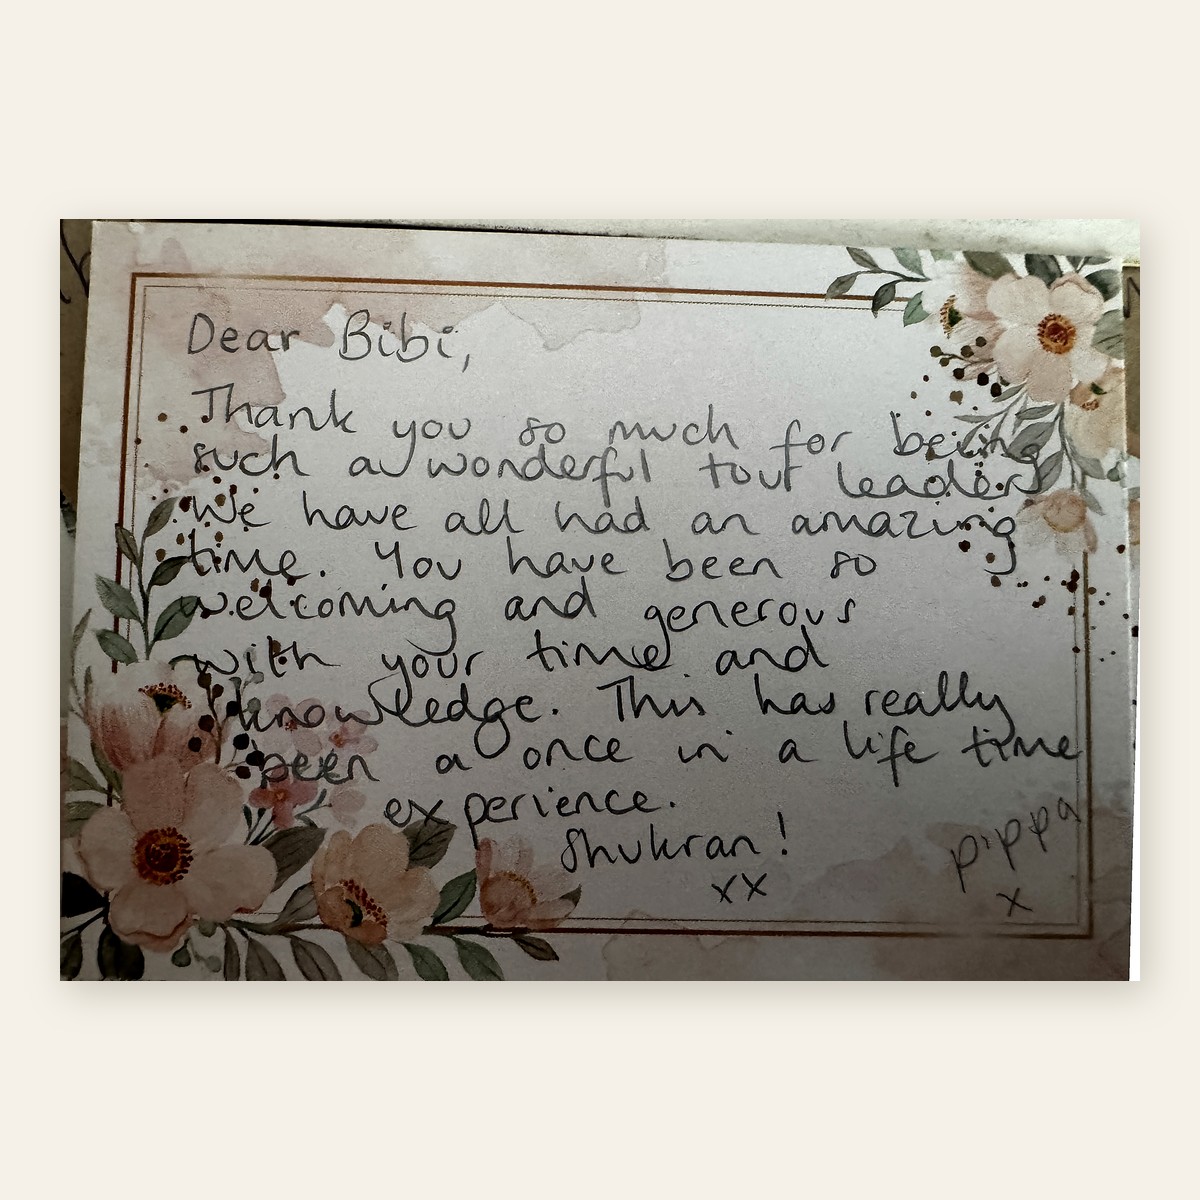 Dear Bibi,
Thank you so much for being
such a wonderful tour leader
We have all had an amazing
time. You have been so
welcoming and generous
with your time and
knowledge. This has really
been a once in a life time
experience.
Shukran!
xx
Pippa
x